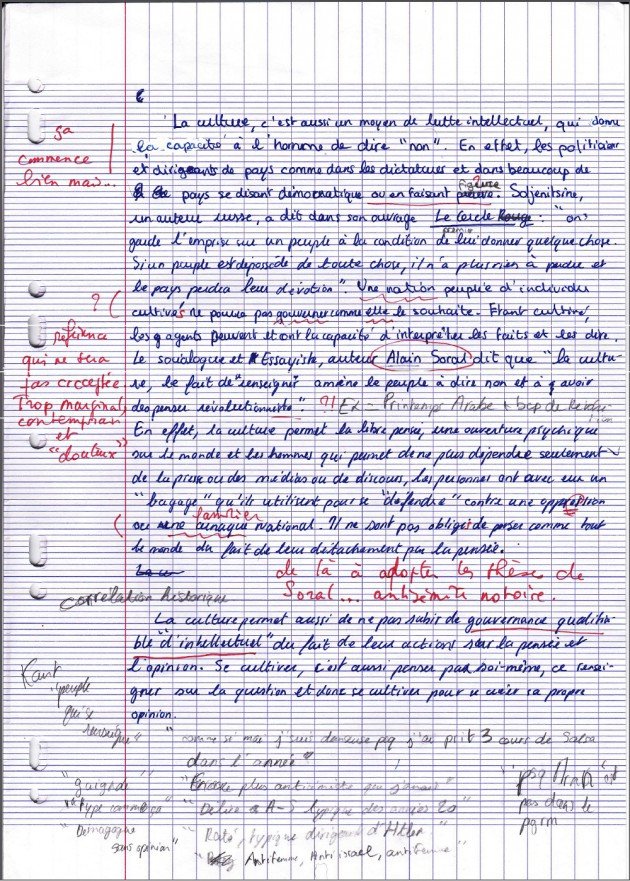 La culture, c'est aussi un moyen de lutte intellectuel, qui donne
la capacité à l'homme de dire "non". En effet, les politiciens
ça commence bien mais...
et dirigeants de pays comme dans les dictatures et dans beaucoup de
pays se disant démocratique ou en faisant figure. Soljenitsine,
un auteur russe, a dit dans son ouvrage Le Cercle : "on
garde l'emprise sur un peuple à la condition de lui donner quelque chose.
Si un peuple est dépossédé de toute chose, il n'a plus rien à perdre et
le pays perdra leur dévotion". Une nation peuplée d'individu
? (
cultivés ne pourra pas gouverner comme elle le souhaite. Etant cultivé,
les agents peuvent et ont la capacité d'interpréter les faits et les dire.
référence qui ne sera pas acceptée
Trop marginal, contemporain et "douteux"
Le sociologue et Essayiste, auteur Alain Soral dit que "la cultu-
re, le fait de renseigner amène le peuple à dire non et à avoir
des penser révolutionnaire" ?! Ex = Printemps Arabe + bcp de
En effet, la culture permet la libre pensé, une ouverture psychique
sur le monde et les hommes qui permet de ne plus dépendre seulement
de la presse ou des médias ou de discours, les personnes ont avec eux un
"bagage" qu'ils utilisent pour se "défendre" contre une oppression
familier
ou arnaque national. Il ne sont pas obligé de penser comme tout
le monde du fait de leur détachement par la pensée.
de là à adopter les thèses de
Soral... antisémite notoire.
Corrélation historique
La culture permet aussi de ne pas subir de gouvernance qualifia-
ble "d'intellectuel" du fait de leur actions sur la pensée et
l'opinion. Se cultiver, c'est aussi penser par soi-même, ce rensei-
gner sur la question et donc se cultiver pour se créer sa propre
opinion.
Kant
"peuple
qui se
"comme si moi j'suis danseuse pcq j'ai prit 3 cours de Salsa
dans l'année"
"Encore plus antisémite que jamais"
"Délire A-S typique des années 20"
"Raté, typique dirigeant d'Hitler"
Antifemme, Anti israel, antifemme"
"Démagogue
sans opinion"
pas dans le
pgrm